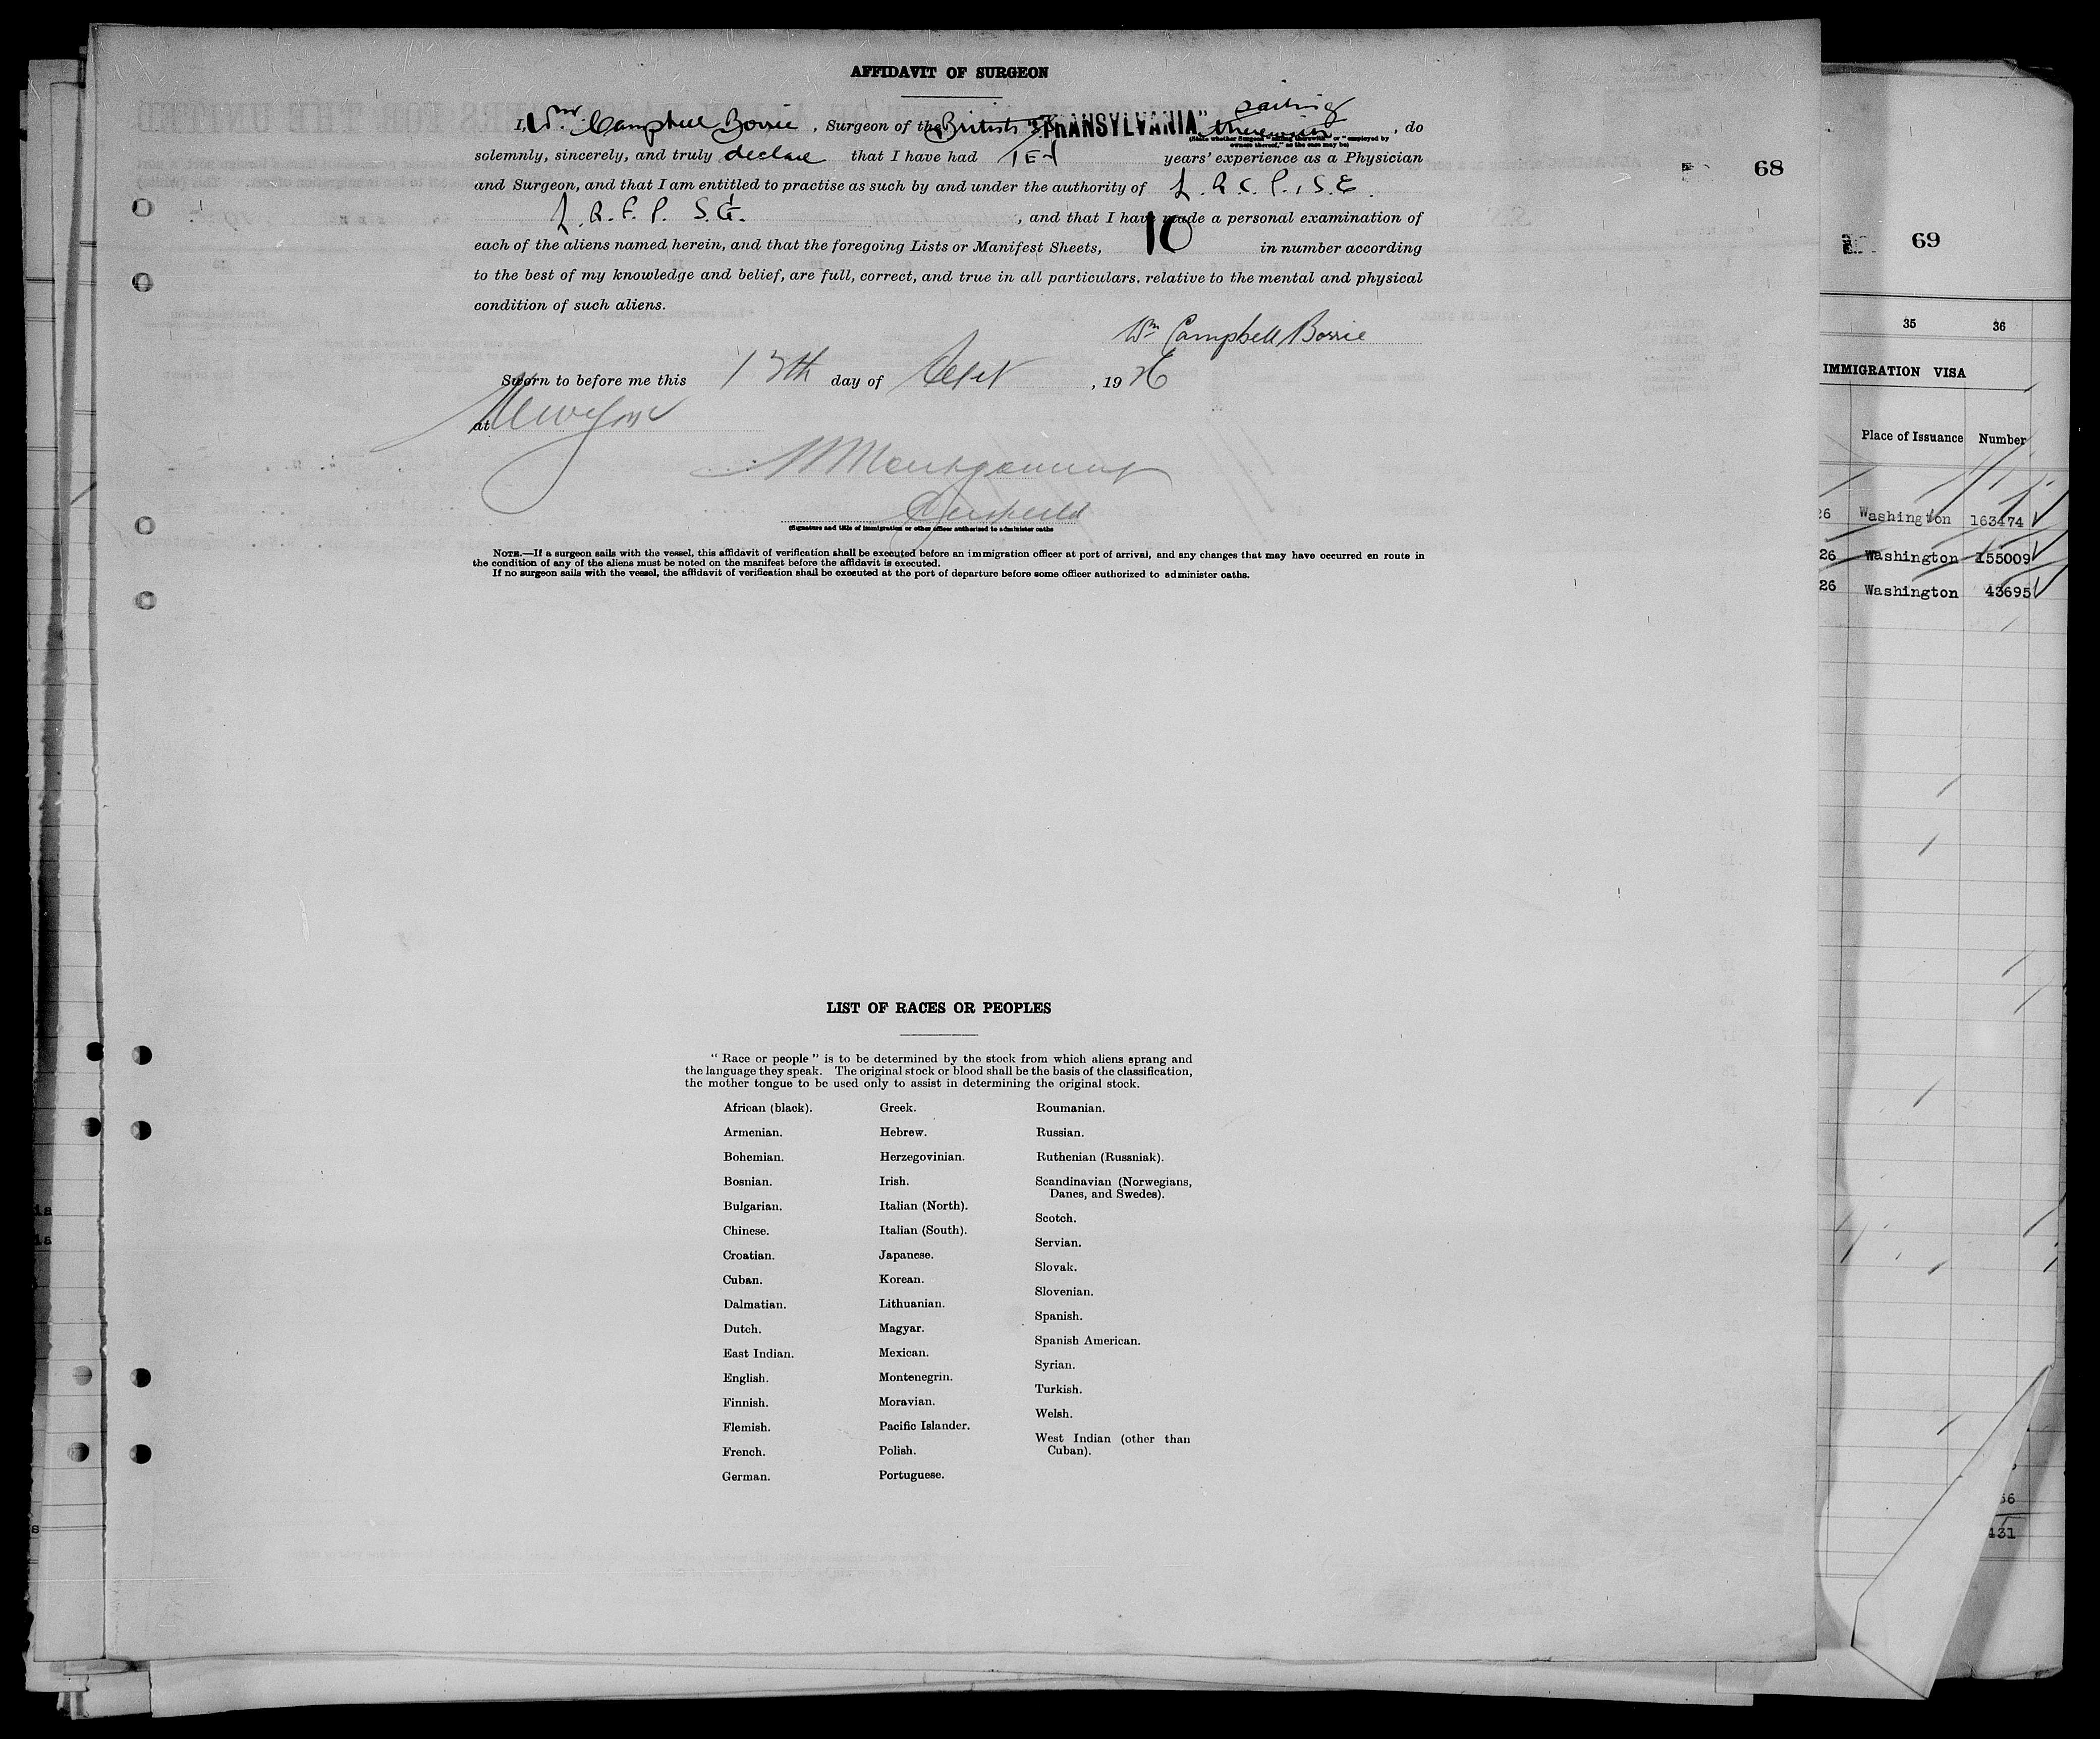 AFFIDAVIT OF SURGEON
I, Wm Campbell Borrie, Surgeon of the British SS "TRANSYLVANIA" sailing therewith, do
(State whether Surgeon "sailing therewith" or "employed by owners thereof," as the case may be)
solemnly, sincerely, and truly declare that I have had TEN years' experience as a Physician
and Surgeon, and that I am entitled to practise as such by and under the authority of L.R.C.P., S.E.
L.R.F.P. S.G., and that I have made a personal examination of
each of the aliens named herein, and that the foregoing Lists or Manifest Sheets, 10 in number according
to the best of my knowledge and belief, are full, correct, and true in all particulars, relative to the mental and physical
condition of such aliens.
Wm Campbell Borrie
Sworn to before me this 13th day of Sept, 1926
at New York
Montgomery
(Signature and title of immigration or other officer authorized to administer oaths
NOTE.—If a surgeon sails with the vessel, this affidavit of verification shall be executed before an immigration officer at port of arrival, and any changes that may have occurred en route in
the condition of any of the aliens must be noted on the manifest before the affidavit is executed.
If no surgeon sails with the vessel, the affidavit of verification shall be executed at the port of departure before some officer authorized to administer oaths.
68
LIST OF RACES OR PEOPLES
" Race or people " is to be determined by the stock from which aliens sprang and
the language they speak. The original stock or blood shall be the basis of the classification,
the mother tongue to be used only to assist in determining the original stock.
African (black).
Armenian.
Bohemian.
Bosnian.
Bulgarian.
Chinese.
Croatian.
Cuban.
Dalmatian.
Dutch.
East Indian.
English.
Finnish.
Flemish.
French.
German.
Greek.
Hebrew.
Herzegovinian.
Irish.
Italian (North).
Italian (South).
Japanese.
Korean.
Lithuanian.
Magyar.
Mexican.
Montenegrin.
Moravian.
Pacific Islander.
Polish.
Portuguese.
Roumanian.
Russian.
Ruthenian (Russniak).
Scandinavian (Norwegians,
Danes, and Swedes).
Scotch.
Servian.
Slovak.
Slovenian.
Spanish.
Spanish American.
Syrian.
Turkish.
Welsh.
West Indian (other than
Cuban).
69
35 36
IMMIGRATION VISA
Place of Issuance Number
26 Washington 163474
26 Washington 155009
26 Washington 43695
56
431